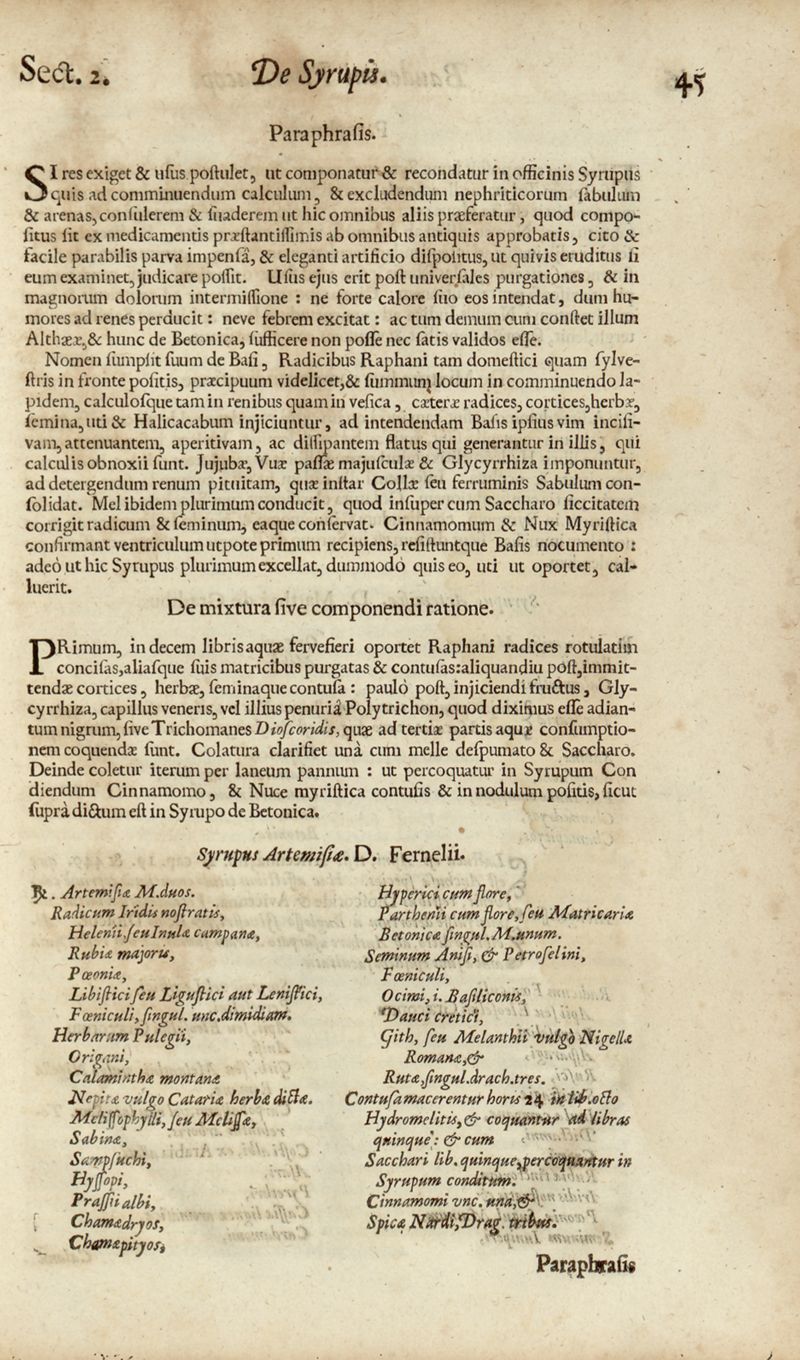 Sect. 2. De Syrupis. 45
Paraphrasis.
SI res exiget & usus postulet, ut componatur & recondatur in officinis Syrupus
quis ad comminuendum calculum, & excludendum nephriticorum sabulum
& arenas, consulerem & suaderem ut hic omnibus aliis præferatur, quod compo-
situs sit ex medicamentis præstantissimis ab omnibus antiquis approbatis, cito &
facile parabilis parva impensa, & eleganti artificio dispolitus, ut quivis eruditus si
eum examinet, judicare possit. Usus ejus erit post universales purgationes, & in
magnorum dolorum intermissione : ne forte calore suo eos intendat, dum hu-
mores ad renes perducit : neve febrem excitat : ac tum demum cum constet illum
Althææ, & hunc de Betonica, sufficere non posse nec satis validos esse.
Nomen sumpsit suum de Basi, Radicibus Raphani tam domestici quam sylve-
stris in fronte positis, præcipuum videlicet, & summum locum in comminuendo la-
pidem, calculosque tam in renibus quam in vesica, cæteræ radices, cortices, herbæ,
semina, uti & Halicacabum injiciuntur, ad intendendam Basis ipsius vim incisi-
vam, attenuantem, aperitivam, ac dissipantem flatus qui generantur in illis, qui
calculis obnoxii sunt. Jujubæ, Vuæ passæ majusculæ & Glycyrrhiza imponuntur,
ad detergendum renum pituitam, quæ instar Collæ seu ferruminis Sabulum con-
solidat. Mel ibidem plurimum conducit, quod insuper cum Saccharo siccitatem
corrigit radicum & seminum, eaque conservat. Cinnamomum & Nux Myristica
confirmant ventriculum utpote primum recipiens, resistuntque Basis nocumento :
adeò ut hic Syrupus plurimum excellat, dummodò quis eo, uti ut oportet, cal-
luerit.
De mixtura sive componendi ratione.
PRimum, in decem libris aquæ fervefieri oportet Raphani radices rotulatim
concisas, aliasque suis matricibus purgatas & contusas: aliquandiu póst, immit-
tendæ cortices, herbæ, seminaque contusa : paulò post, injiciendi fructus, Gly-
cyrrhiza, capillus veneris, vel illius penuriâ Polytrichon, quod diximus esse adian-
tum nigrum, sive Trichomanes Dioscoridis, quæ ad tertiæ partis aquæ consumptio-
nem coquendæ sunt. Colatura clarifiet unà cum melle despumato & Saccharo.
Deinde coletur iterum per laneum pannum : ut percoquatur in Syrupum Con
diendum Cinnamomo, & Nuce myristica contusis & in nodulum positis, sicut
suprà dictum est in Syrupo de Betonica.
Syrupus Artemisiæ. D. Fernelii.
℞. Artemisiæ M.duos.
Radicum Iridis nostratis,
Helenii, seu Inulæ campanæ,
Rubiæ majoris,
Pœoniæ,
Libistici seu Ligustici aut Lenistici,
Fœniculi, singul. unc. dimidiam.
Herbarum Pulegii,
Origani,
Calaminthæ montanæ
Nepitæ vulgo Catariæ herbæ dictæ.
Melissophylli, seu Melissæ,
Sabinæ,
Sampsuchi,
Hyssopi,
Prassii albi,
Chamædryos,
Chamæpityos,
Hyperici cum flore,
Parthenii cum flore, seu Matricariæ
Betonicæ singul. M.unum.
Seminum Anisi, & Petroselini,
Fœniculi,
Ocimi, i. Basiliconis,
Dauci cretici,
Gith, seu Melanthii vulgò Nigellæ
Romanæ, &
Rutæ, singul. drach. tres.
Contusa macerentur horis 24 in lib. octo
Hydromelitis, & coquantur ad libras
quinque : & cum
Sacchari lib. quinque, percoquantur in
Syrupum conditum.
Cinnamomi vnc. una, &
Spicæ Nardi, Drag. tribus.
Paraphrasis